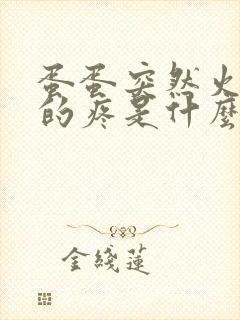 蛋蛋突然火
的疼是什麼
金綫蓮